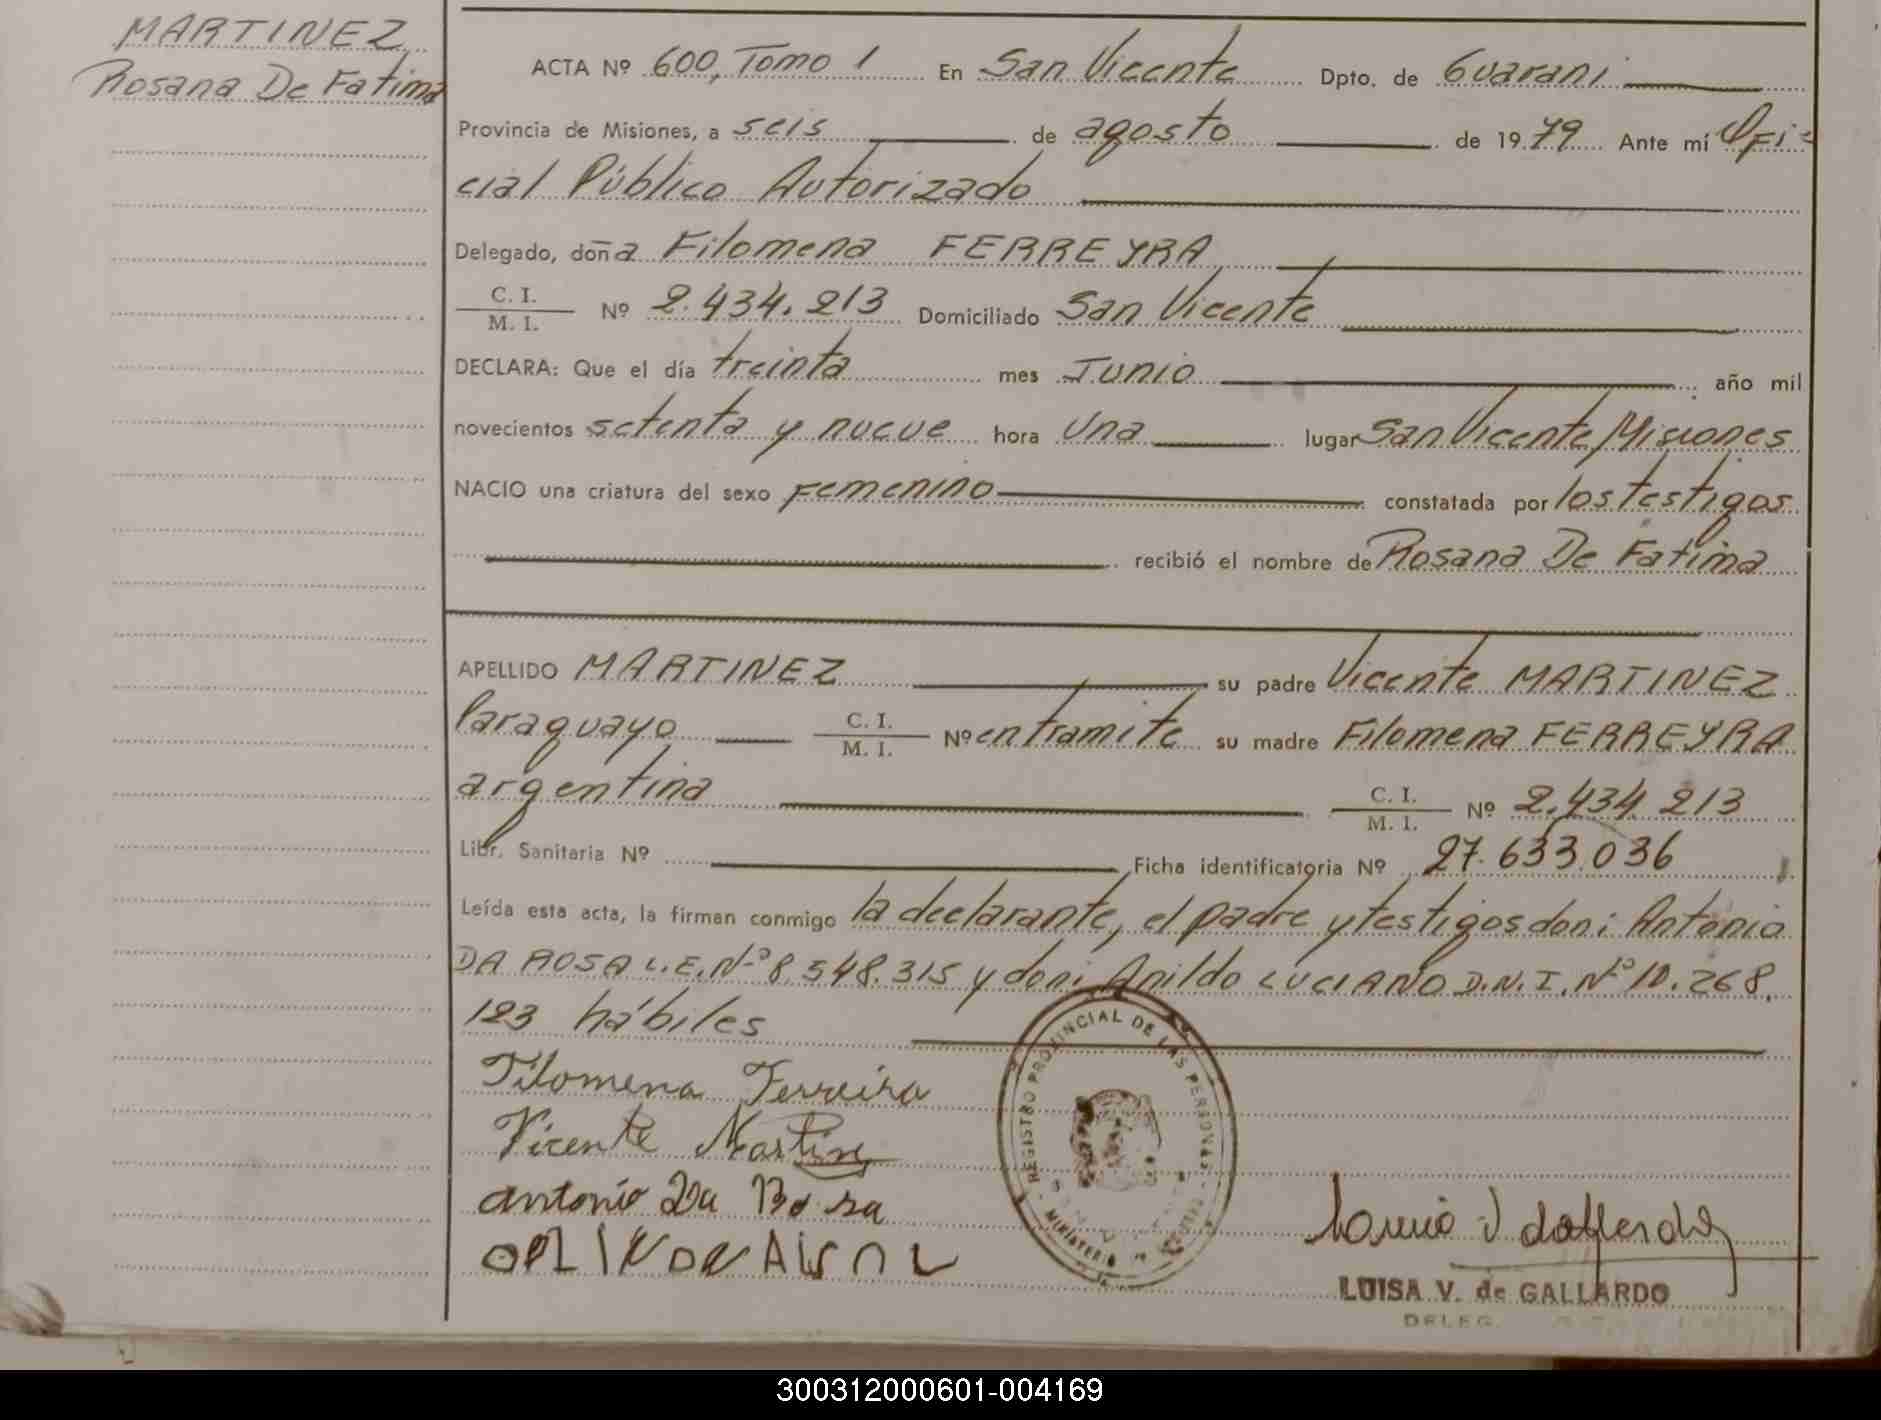 MARTINEZ
Rosana De Fatima
ACTA Nº 600, Tomo 1 En San Vicente Dpto. de Guarani
Provincia de Misiones, a seis de agosto de 1979 Ante mí Ofi-
cial Público Autorizado
Delegado, doña Filomena FERREYRA
C. I.
M. I. Nº 2.434.213 Domiciliado San Vicente
DECLARA: Que el día treinta mes Junio año mil
novecientos setenta y nueve hora una lugar San Vicente Misiones
NACIO una criatura del sexo Femenino constatada por los testigos
recibió el nombre de Rosana De Fatima
APELLIDO MARTINEZ su padre Vicente MARTINEZ
Paraguayo C. I.
M. I. Nº entramite su madre Filomena FERREYRA
argentina C. I.
M. I. Nº 2.434.213
Libr. Sanitaria Nº Ficha identificatoria Nº 27.633.036
Leída esta acta, la firman conmigo la declarante, el padre y testigos don: Antonio
DA ROSA L.E. Nº 8.548.315 y don: Anildo LUCIANO D.N.I. Nº 10.268.
123 hábiles
Filomena Ferreira
Vicente Martinez
antonio Da Rosa
REGISTRO PROVINCIAL DE LAS PERSONAS
MINISTERIO
LUISA V. de GALLARDO
DELEG.
300312000601-004169